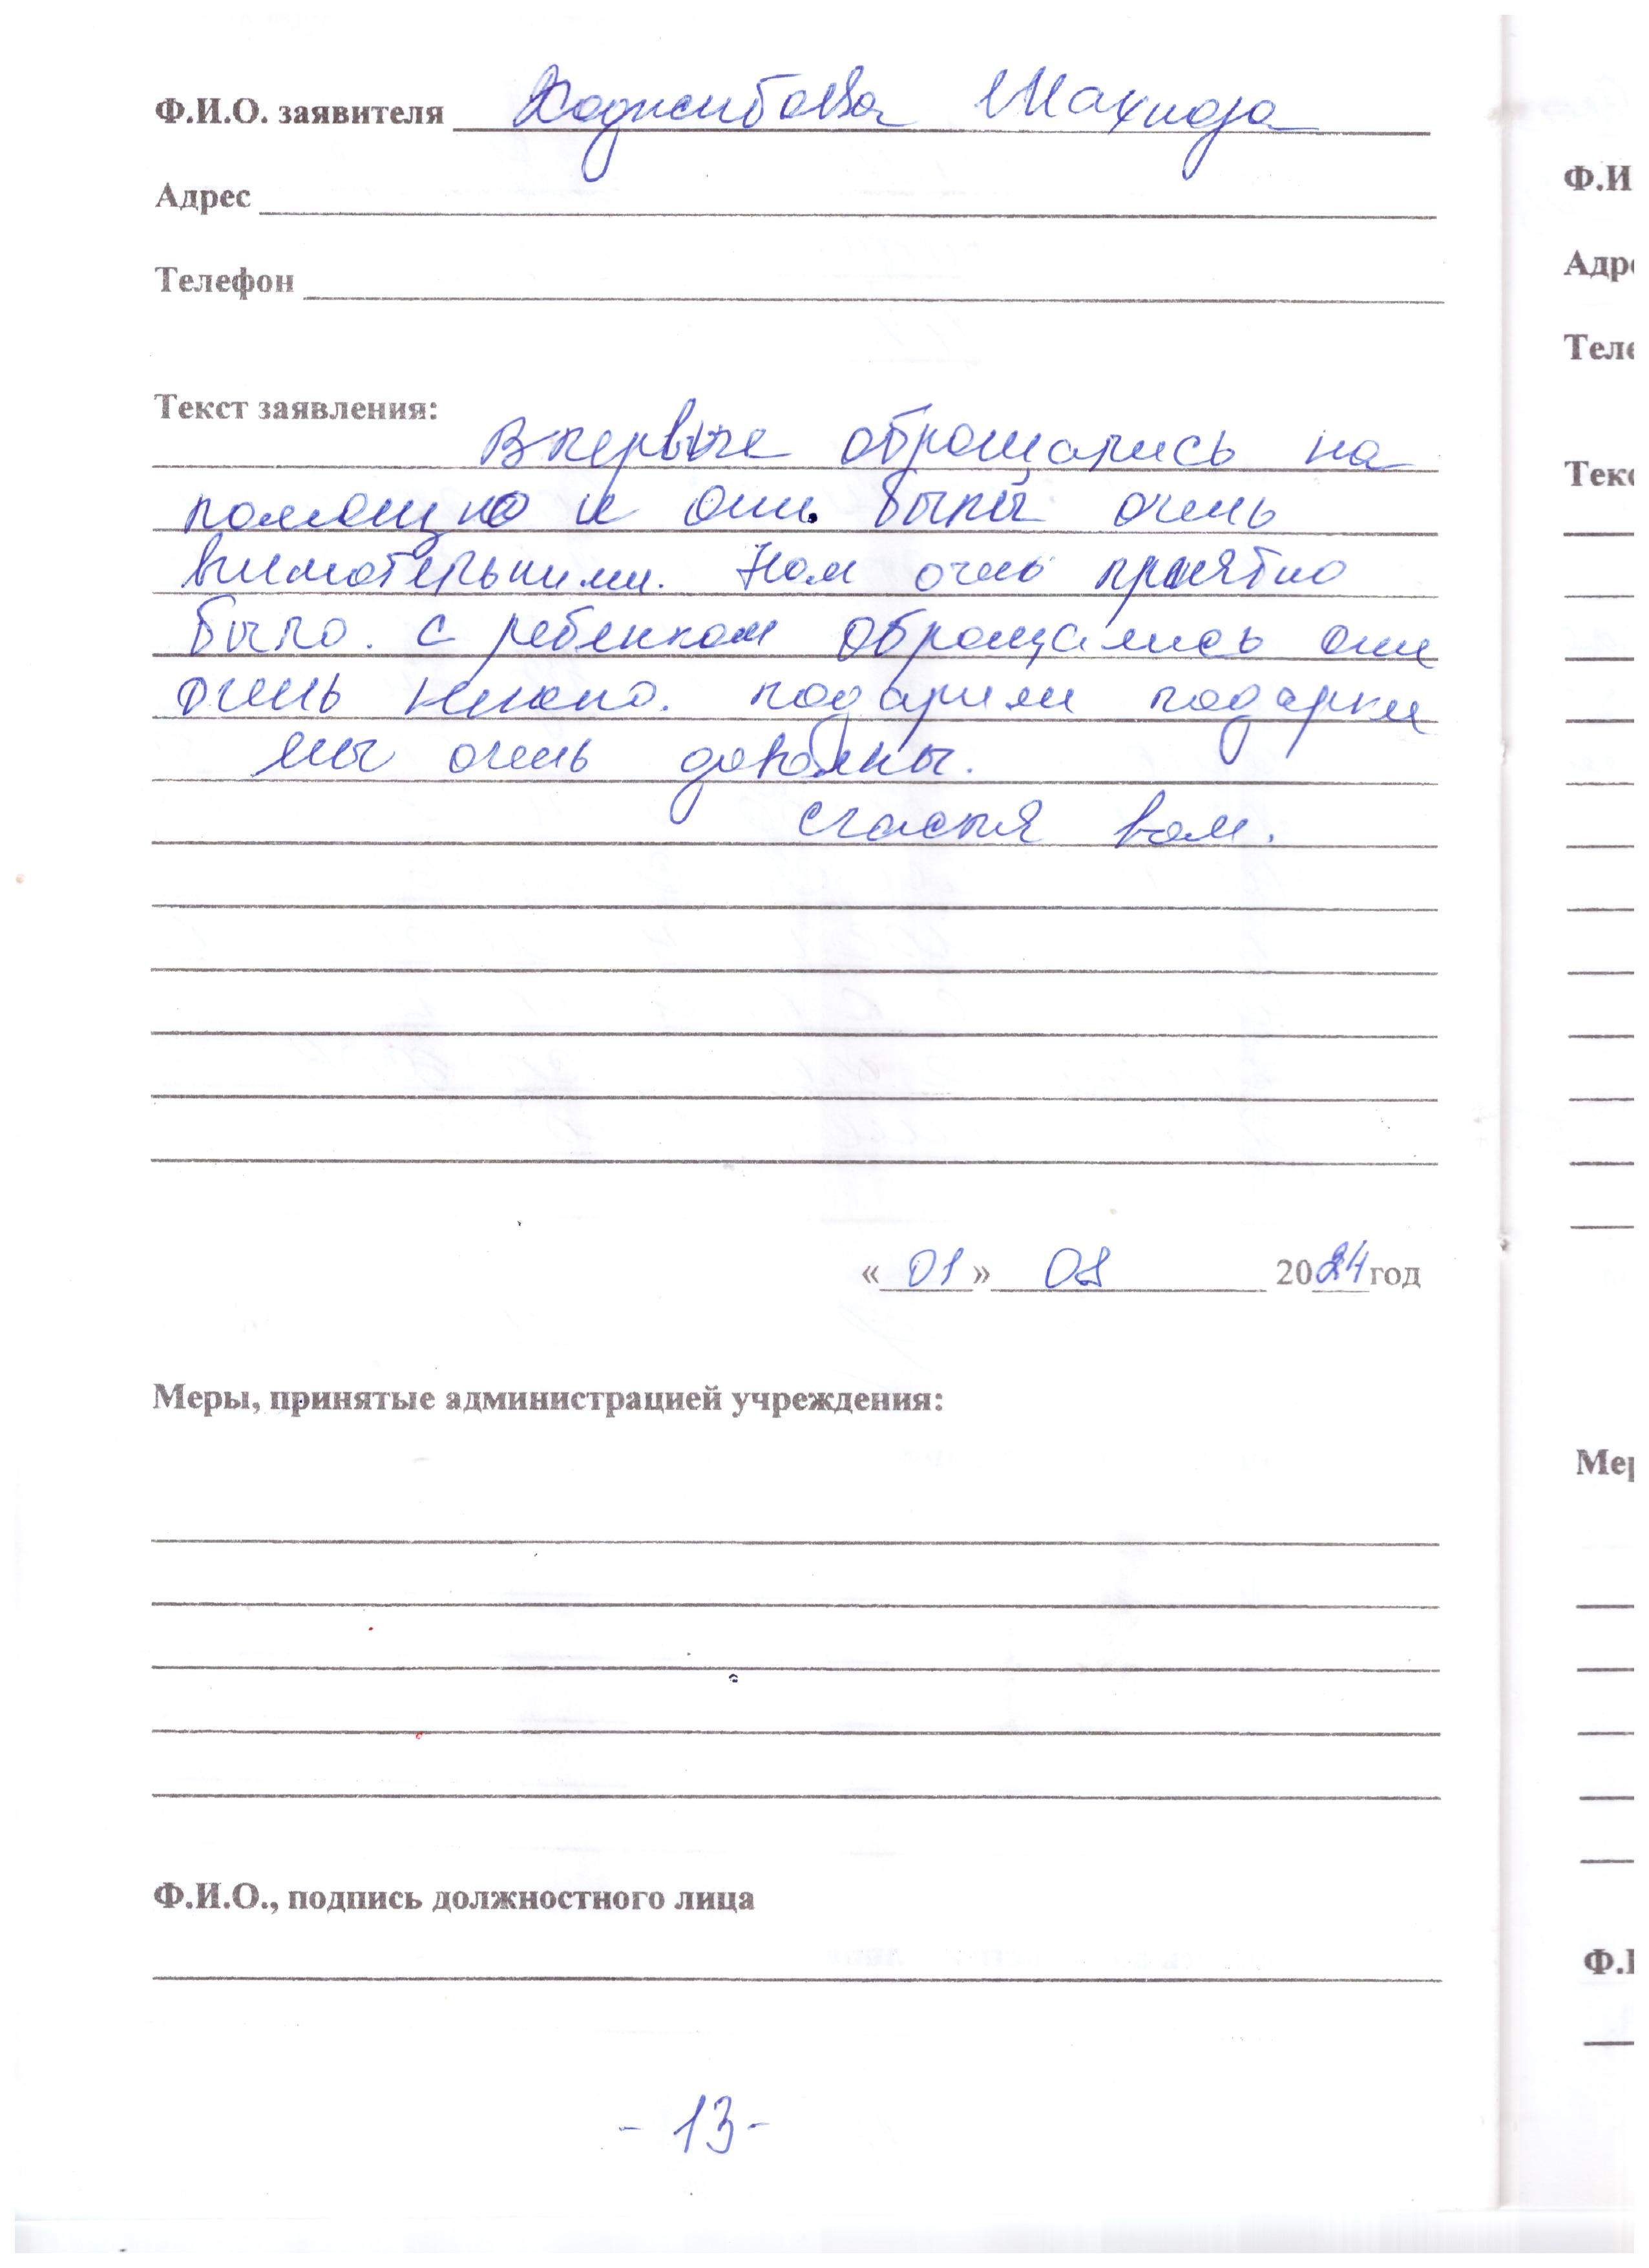 Ф.И.О. заявителя Ходжибаева Шахноза
Адрес
Телефон
Текст заявления:
Впервые обращались на
помощью и они были очень
внимательными. Нам очень приятно
было. с ребенком обращались они
очень нежно. подарили подарки
мы очень довольны.
счастья вам.
«01» 08 2024 год
Меры, принятые администрацией учреждения:
Ф.И.О., подпись должностного лица
- 13 -
Ф.И
Адр
Теле
Текс
Мер
Ф.